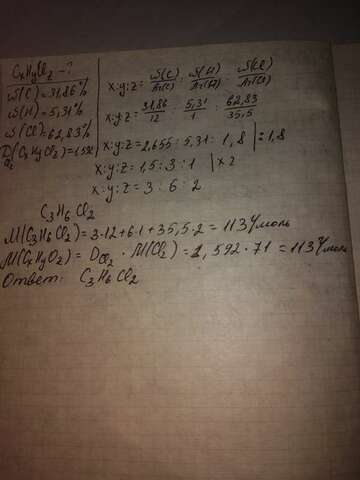 CxHyClz - ?
ω(C) = 31,86%
ω(H) = 5,31%
ω(Cl) = 62,83%
D Cl2 (CxHyClz) = 1,592
x:y:z = ω(C)/Ar(C) : ω(H)/Ar(H) : ω(Cl)/Ar(Cl)
x:y:z = 31,86/12 : 5,31/1 : 62,83/35,5
x:y:z = 2,655 : 5,31 : 1,8 | :1,8
x:y:z = 1,5 : 3 : 1 | x 2
x:y:z = 3 : 6 : 2
C3H6Cl2
M(C3H6Cl2) = 3·12+6·1+35,5·2 = 113 г/моль
M(CxHyClz) = DCl2 · M(Cl2) = 1,592·71 = 113 г/моль
Ответ: C3H6Cl2